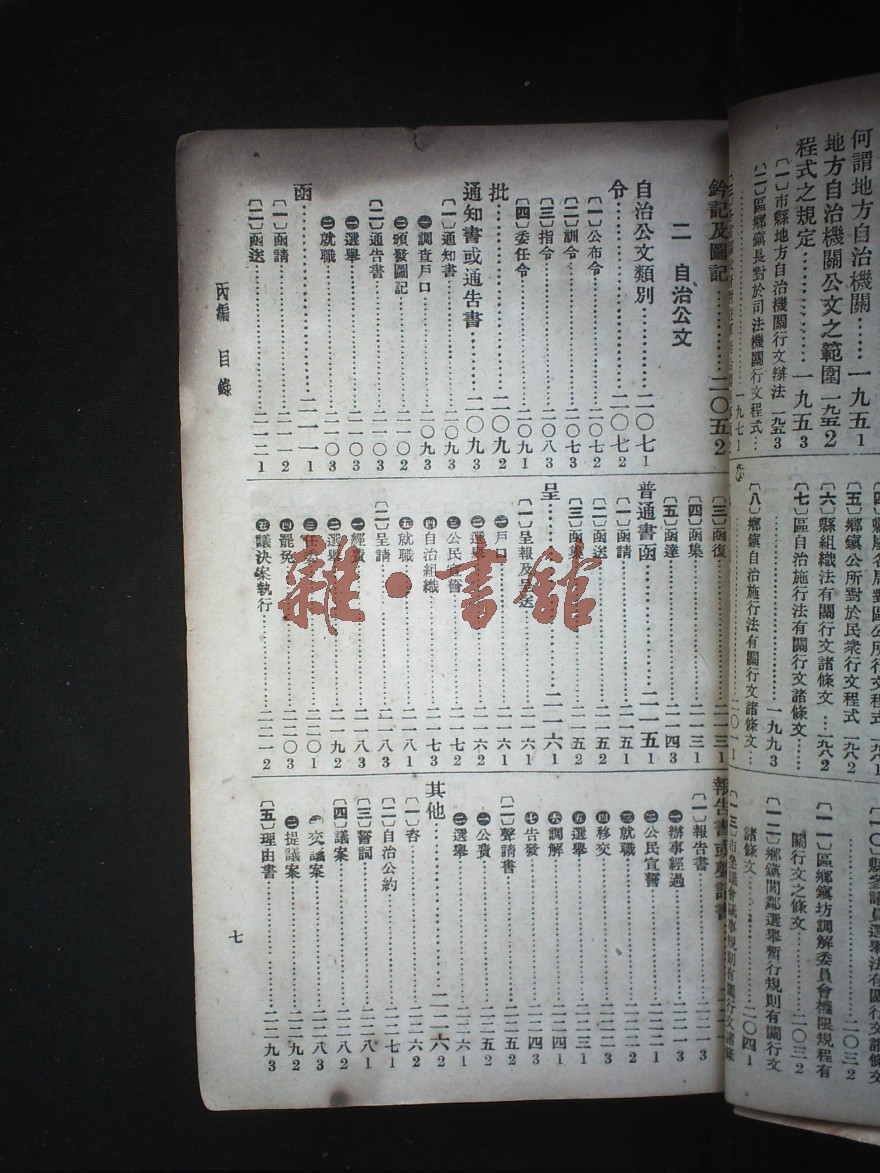 何謂地方自治機關……一九五1
地方自治機關公文之範圍 一九五2
程式之規定……一九五3
〔一〕市縣地方自治機關行文辦法 一九五3
〔二〕區鄉鎮長對於司法機關行文程式…
……一九七1
〔四〕縣屬各局對區公所行文程式 一九八1
〔五〕鄉鎮公所對於民衆行文程式 一九八2
〔六〕縣組織法有關行文諸條文…一九八2
〔七〕區自治施行法有關行文諸條文……
……一九九3
〔八〕鄉鎮自治施行法有關行文諸條文…
……二〇一1
〔一〇〕縣參議員選舉法有關行文諸條文
……二〇三2
〔一一〕區鄉鎮坊調解委員會權限規程有
關行文之條文……二〇三2
〔一二〕鄉鎮閭鄰選舉暫行規則有關行文
諸條文……二〇四1
鈐記及圖記……二〇五2
二 自治公文
自治公文類別……二〇七1
令……二〇七2
〔一〕公布令……二〇七2
〔二〕訓令……二〇七3
〔三〕指令……二〇八3
〔四〕委任令……二〇九1
批……二〇九2
通知書或通告書……二〇九3
〔一〕通知書……二〇九3
㊀調查戶口……二〇九3
㊁頒發圖記……二一〇2
〔二〕通告書……二一〇3
㊀選舉……二一〇3
㊁就職……二一〇3
函……二一一1
〔一〕函請……二一一2
〔二〕函送……二一二1
〔三〕函復……二一三1
〔四〕函集……二一三1
〔五〕函達……二一四3
普通書函……二一五1
〔一〕函請……二一五1
〔二〕函送……二一五2
〔三〕函集……二一五2
呈……二一六1
〔一〕呈報及呈送……二一六1
㊀戶口……二一六1
㊁選舉……二一六2
㊂公民宣誓……二一七2
㊃自治組織……二一七3
㊄就職……二一八1
〔二〕呈請……二一八3
㊀經費……二一八3
㊁選舉……二一九2
㊂任……二二〇1
㊃罷免……二二〇3
㊄議決案執行……二二一2
報告書或聲請書
〔一〕報告書……二二一3
㊀辦事經過……二二一3
㊁公民宣誓……二二二1
㊂就職……二二二2
㊃移交……二二二3
㊄選舉……二二三1
㊅調解……二二四1
㊆告發……二二四3
〔二〕聲請書……二二五2
㊀公費……二二五2
㊁選舉……二二六1
其他……二二六2
〔一〕咨……二二六2
〔二〕自治公約……二二七1
〔三〕誓詞……二二八1
〔四〕議案……二二八2
㊀交議案……二二八3
㊁提議案……二二九2
〔五〕理由書……二二九3
丙編 目錄
七
雜·書館